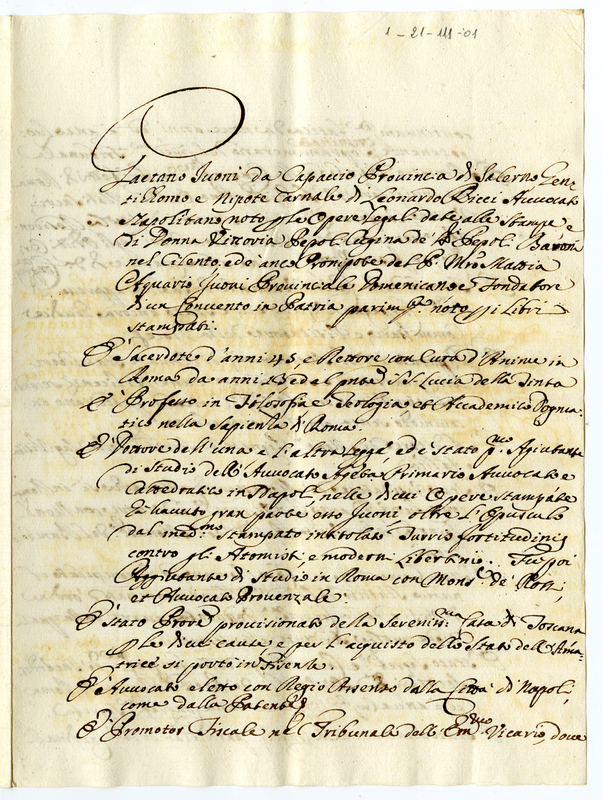 1-21-III-01
Gaetano Iuoni da Capaccio Provincia di Salerno Gen
til Homo e Nipote Carnale di Leonardo Ricci Avvocato
Napolitano noto p le Opere Legali date alle Stampe e
di Donna Vittoria Pepoli Cugina de' Pepoli Baroni
nel Cilento, ed è anco Pronipote del P. Mro Mattia
Acquario Iuoni Provinciale Domenicano e Fondatore
di un Convento in Patria parim noto p i Libri
stampati.
È Sacerdote d'anni 45, e Rettore con Cura d'Anime in
Roma da anni 13 ed al pnte S. Lucia della Tinta
È Professo in Filosofia e Teologia et Accademico Dogma
tico nella Sapienza di Roma.
È Dottore dell'una e l'altra Legge, ed è stato Agiutante
di Studio dell'Avvocato Primario Avvocato e
Cattedratico in Napoli, nelle di cui Opere stampate
hà havuto gran parte esso Iuoni, oltre l'Opusculo
dal med.mo stampato intitolato Turris fortitudinis
contro gli Atomisti, e moderni Libertini. Fu poi
Aggiutante di Studio in Roma con Mons. de' Rossi,
et Avvocato Provenzale.
È stato provisionato della Sereniss.ma Casa di Toscana
p le di cui cause e per l'acquisto dello Stato dell'Ama
trice si portò in Firenze.
È Avvocato eletto con Regio Assenso dalla Città di Napoli,
come dalla Patente
È Promotor Fiscale nel Tribunale dell'Em.mo Vicario, dove